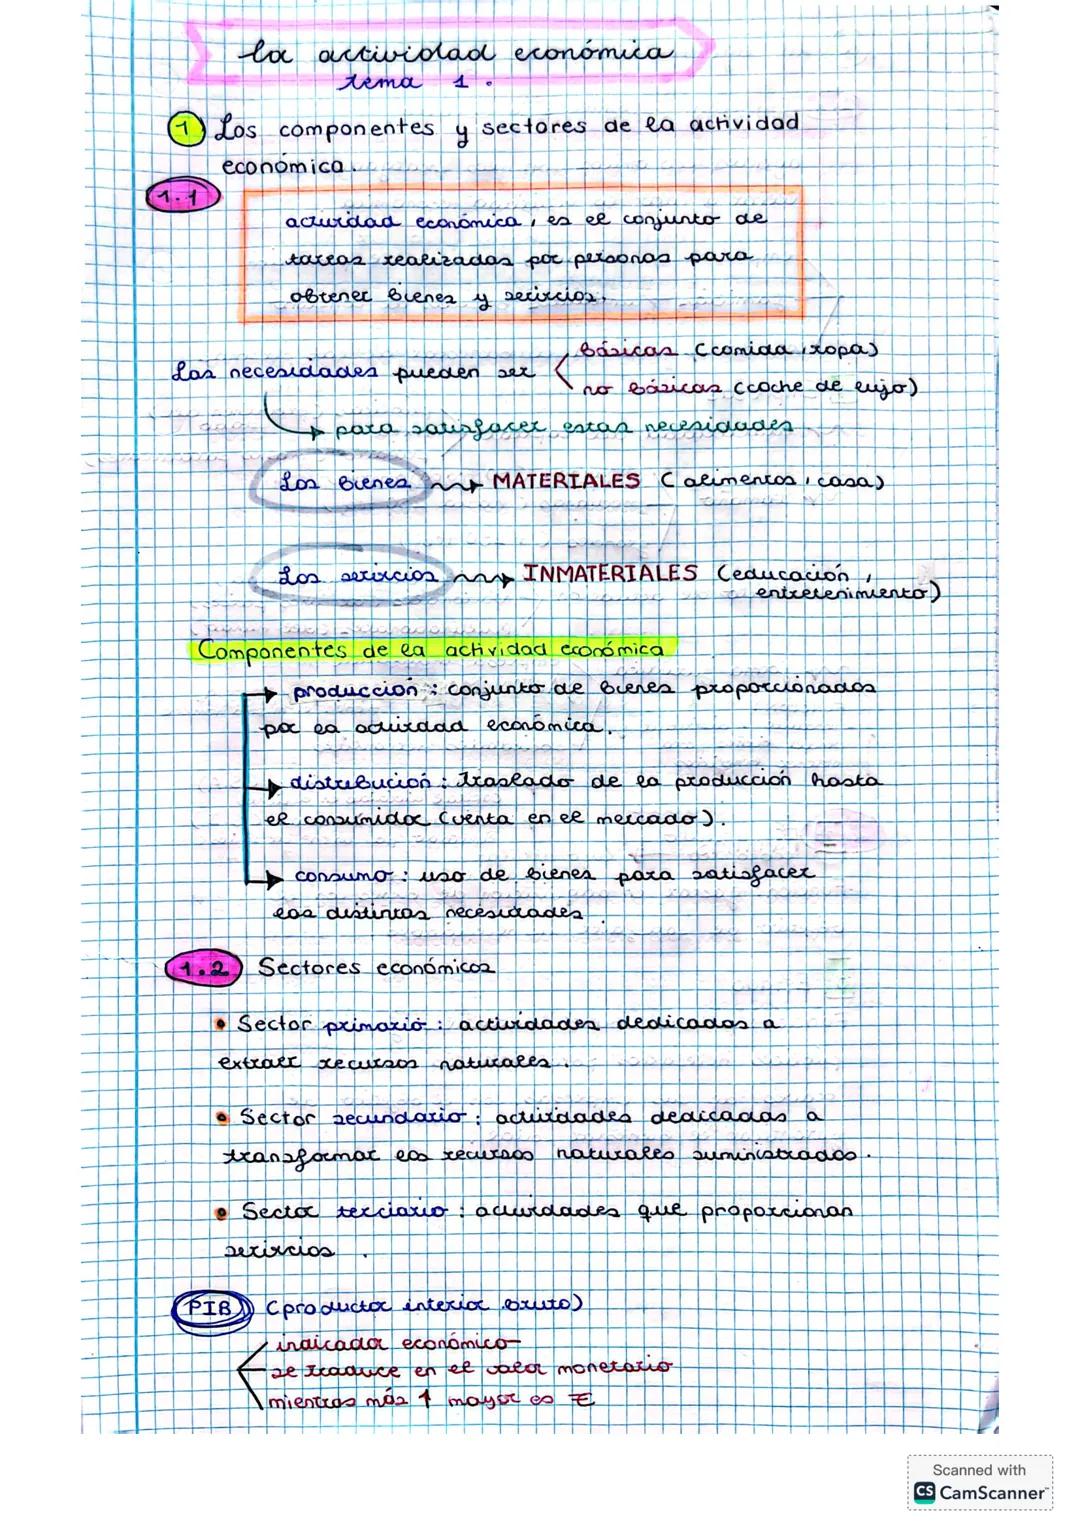 La actividad económica
tema 1.
1 Los componentes y sectores de la actividad
económica.
1.1
actividad económica, es el conjunto de
tareas realizadas por personas para
obtener bienes y servicios.
Las necesidades pueden ser
básicas (comida, ropa)
no básicas (coche de lujo)
para satisfacer estas necesidades
Los bienes MATERIALES (alimentos, casa)
Los servicios INMATERIALES (educación,
entretenimiento)
Componentes de la actividad económica
→ producción: conjunto de bienes proporcionados
por la actividad económica.
→ distribución: traslado de la producción hasta
el consumidor (venta en el mercado).
→ consumo: uso de bienes para satisfacer
las distintas necesidades.
1.2 Sectores económicos
• Sector primario: actividades dedicadas a
extraer recursos naturales.
• Sector secundario: actividades dedicadas a
transformar los recursos naturales suministrados.
• Sector terciario: actividades que proporcionan
servicios.
PIB (productor interior bruto)
indicador económico
se traduce en el valor monetario
mientras más ↑ mayor es €
Scanned with
CS CamScanner™